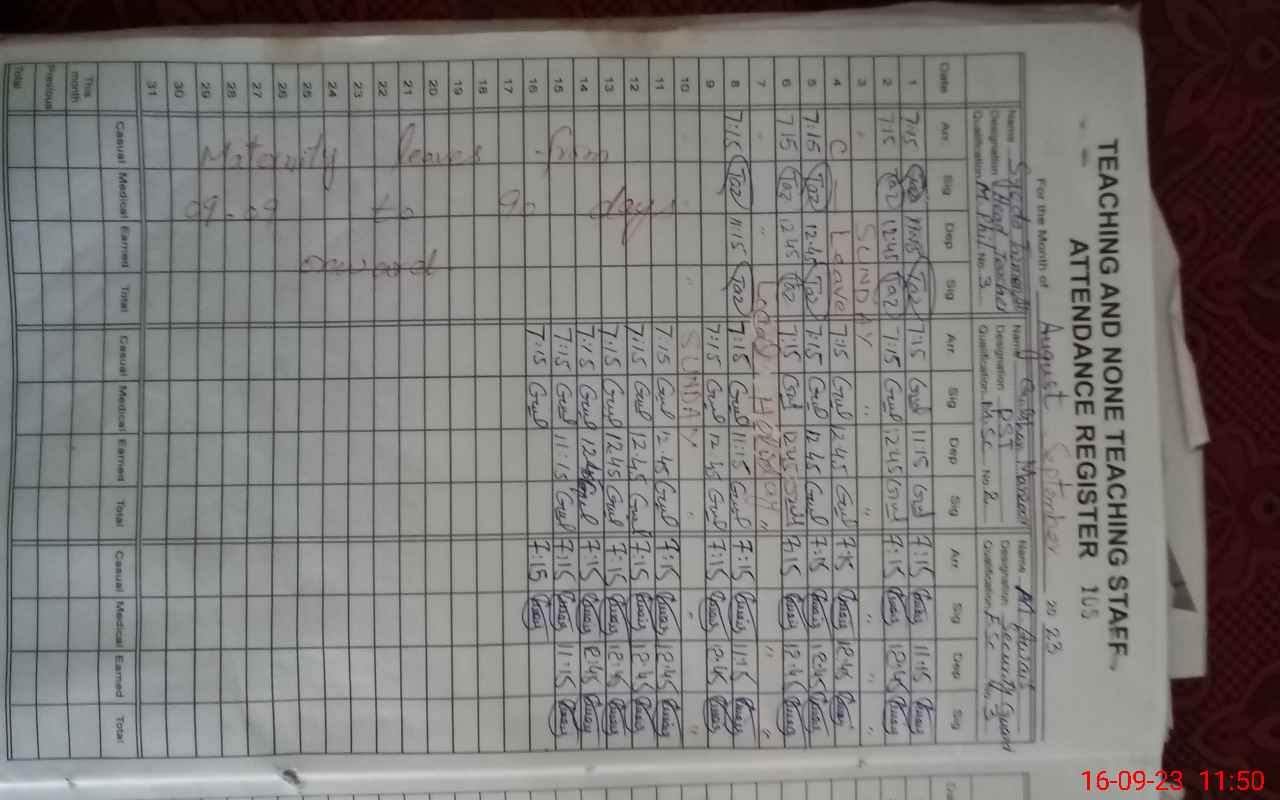 TEACHING AND NONE TEACHING STAFF
ATTENDANCE REGISTER 105
For the Month of August September 2023
Name Syeda Designation Head Teacher Qualification M.Phil No. 3
Name Designation PST Qualification M.Sc No. 2
Name M Designation Security Guard Qualification F.Sc No. 3
Date Arr Sig Dep Sig Arr Sig Dep Sig Arr Sig Dep Sig
1 7:15 11:15 Taz 7:15 Gul 11:15 Gul 7:15 11:15
2 7:15 Taz 12:45 Taz 7:15 Gul 12:45 Gul 7:15 12:45
3 " SUNDAY " " " "
4 C Leave 7:15 Gul 12:45 Gul 7:15 12:45
5 7:15 Taz 12:45 Taz 7:15 Gul 12:45 Gul 7:15 12:45
6 7:15 Taz 12:45 Taz 7:15 Gul 12:45 Gul 7:15 12:45
7 " " Local Holiday " " "
8 7:15 Taz 11:15 Taz 7:15 Gul 11:15 Gul 7:15 11:15
9 7:15 Gul 12:45 Gul 7:15 12:45
10 " SUNDAY " " "
11 7:15 Gul 12:45 Gul 7:15 12:45
12 7:15 Gul 12:45 Gul 7:15 12:45
13 7:15 Gul 12:45 Gul 7:15 12:45
14 7:15 Gul 12:45 Gul 7:15 12:45
15 7:15 Gul 11:15 Gul 7:15 11:15
16 7:15 Gul 7:15
17
18
19
20
21
22
23
24
25
26
27
28
29
30
31
Maternity leaves from
09.09 to 90 days
onward
Casual Medical Earned Total Casual Medical Earned Total Casual Medical Earned Total
This month
Previous
Total
16-09-23 11:50